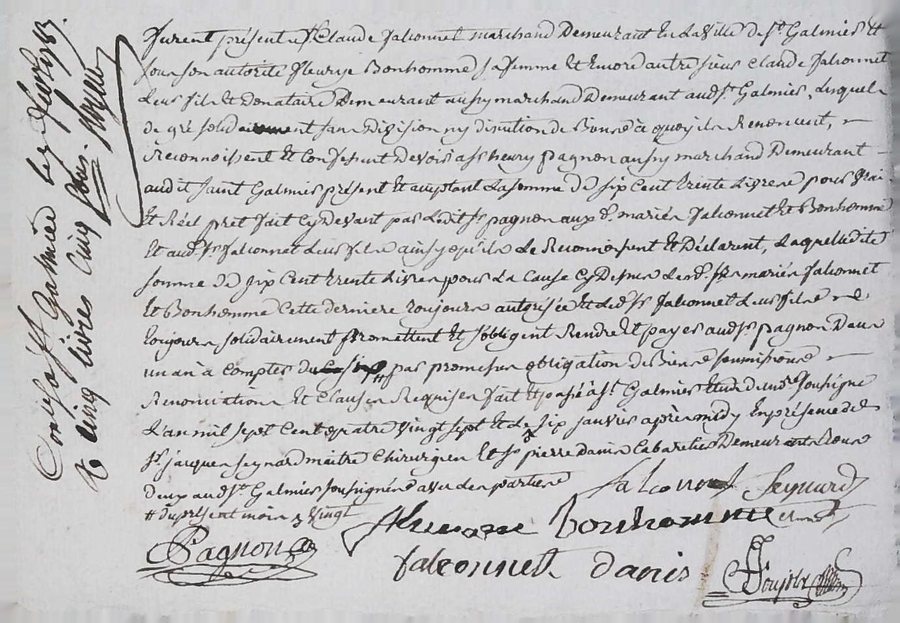 furent présent Sr. Claude falconnet marchand Demeurant En La Ville de St. Galmier Et
sous son autorité fleurye Bonhomme sa femme et Encore autre sieur Claude falconnet
Leur fils et Donataire Demeurant aussy marchand Demeurant aud. St. Galmier, Lesquels
de gré solidairement sans Division ny discution de Biens à quoy ils Renoncent,
Reconnoissent Et Confessent Devoir a Sr henry pagnon aussy marchand Demeurant
audit saint Galmier présent Et acceptant La somme de six Cent trente Livres pour vrai
Et Réel prêt fait Cy Devant par Ledit Sr pagnon aux Sr. mariés falconnet Et Bonhomme
Et aud. Sr. falconnet Leur fils ainsy qu'ils Le Reconnoissent Et Déclarent, Laquelle dite
somme de six Cent trente Livres pour La Cause Cy Dessus Les d. Srs mariés falconnet
Et Bonhomme Cette dernière toujours autorisée Et Led. Sr falconnet Leur fils
toujours solidairement promettent Et s'obligent Rendre Et payer aud. Sr pagnon Dans
un an à Compter du par promesse obligation de Biens soumissions
Renonciations Et Clauses Requises fait Et passé à St. Galmier Etude du no.re soussigné
L'an mil sept Cent quatre vingt sept Et Le six janvier après midy En présence de
Sr. jacques seynard maitre Chirurgien Et Sr pierre danis Cabaretier Demeurants tous
deux aud. St. Galmier soussignés avec les parties
# du présent mois
falconnet Seynard
fleurie bonhomme
Pagnon
falconnet danis
Conlé a St Galmier Le
Cinq Livres Cinq sous